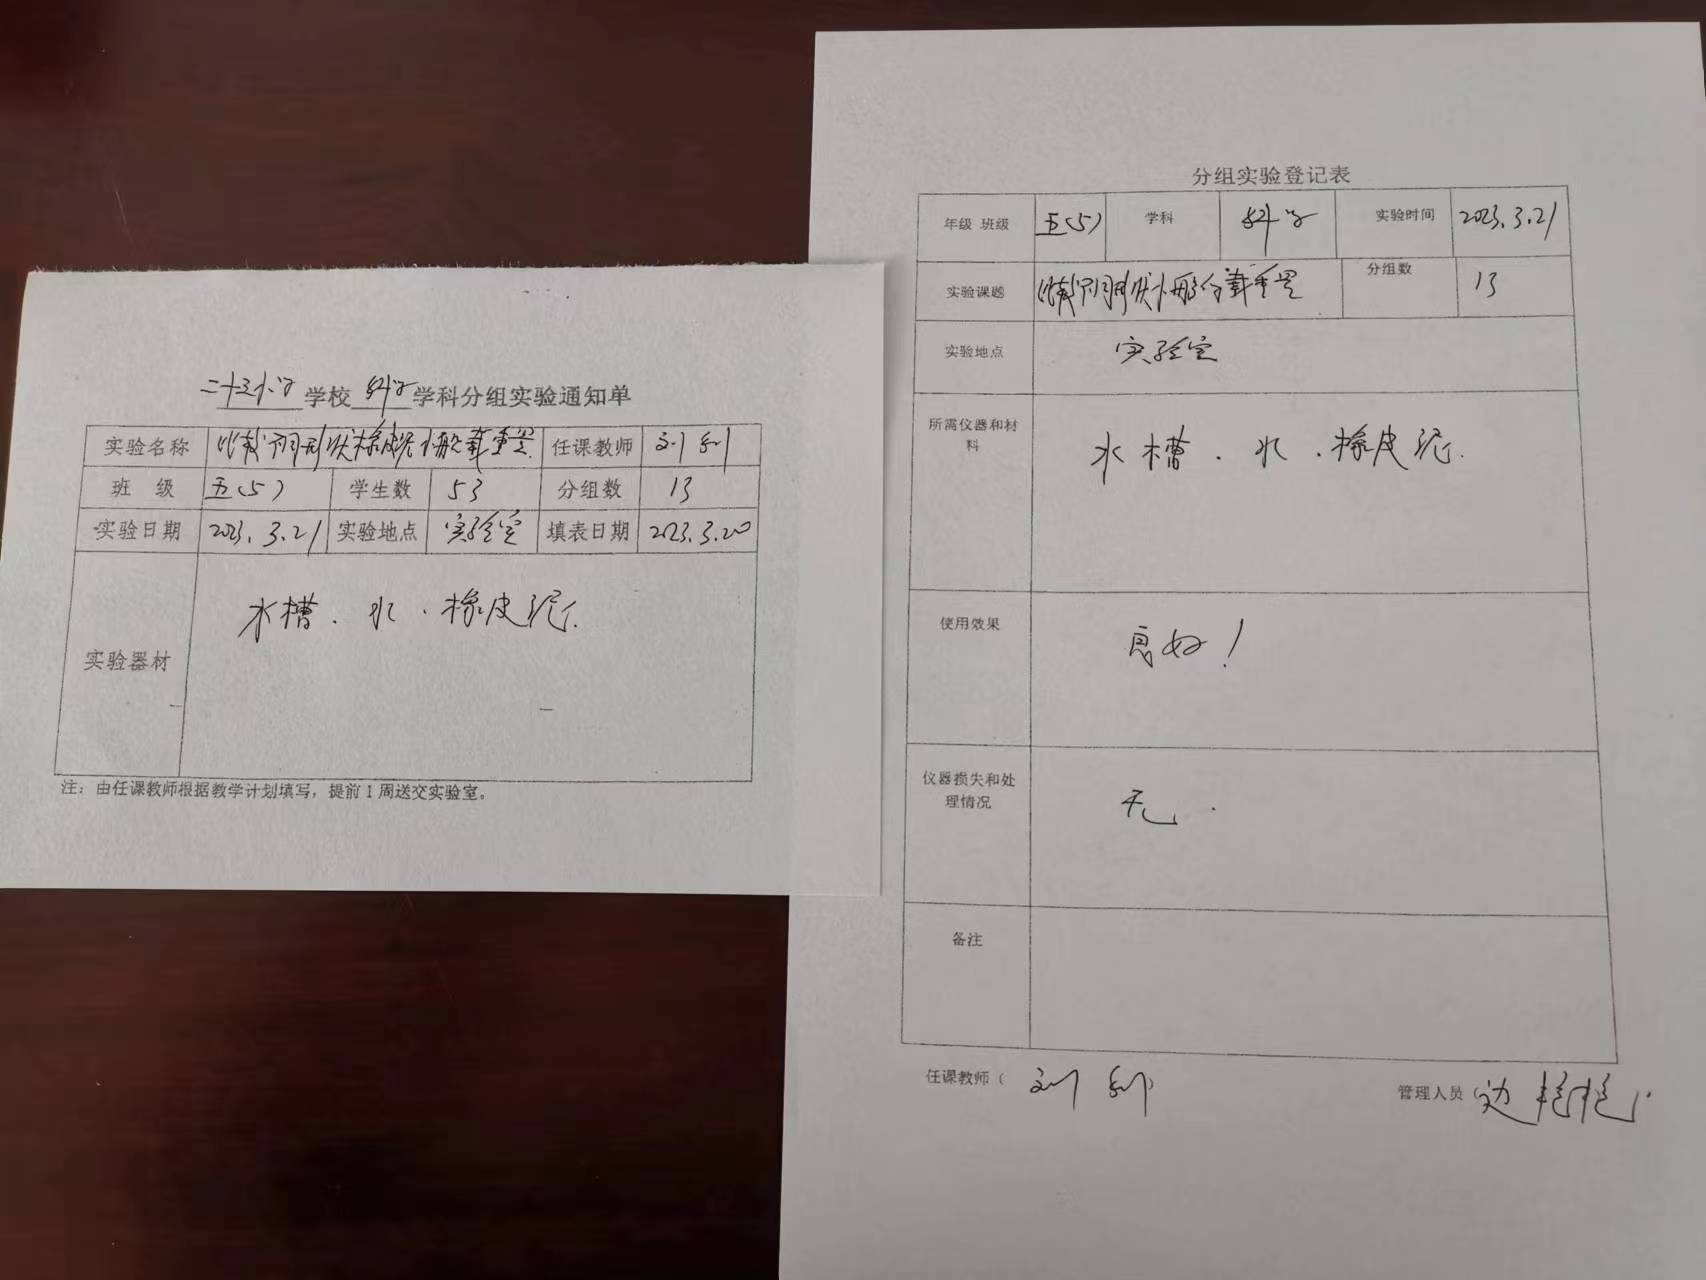 二十三小学学校 科学学科分组实验通知单
实验名称 比较不同形状橡皮泥小船载重量 任课教师 刘利
班 级 五(5) 学生数 53 分组数 13
实验日期 2023.3.21 实验地点 实验室 填表日期 2023.3.20
实验器材 水槽、水、橡皮泥.
注：由任课教师根据教学计划填写，提前1周送交实验室。
分组实验登记表
年级 班级 五(5) 学科 科学 实验时间 2023.3.21
实验课题 比较不同形状小船的载重量 分组数 13
实验地点 实验室
所需仪器和材
料 水槽、水、橡皮泥.
使用效果 良好！
仪器损失和处
理情况 无.
备注
任课教师（ 刘利 管理人员（边艳艳）